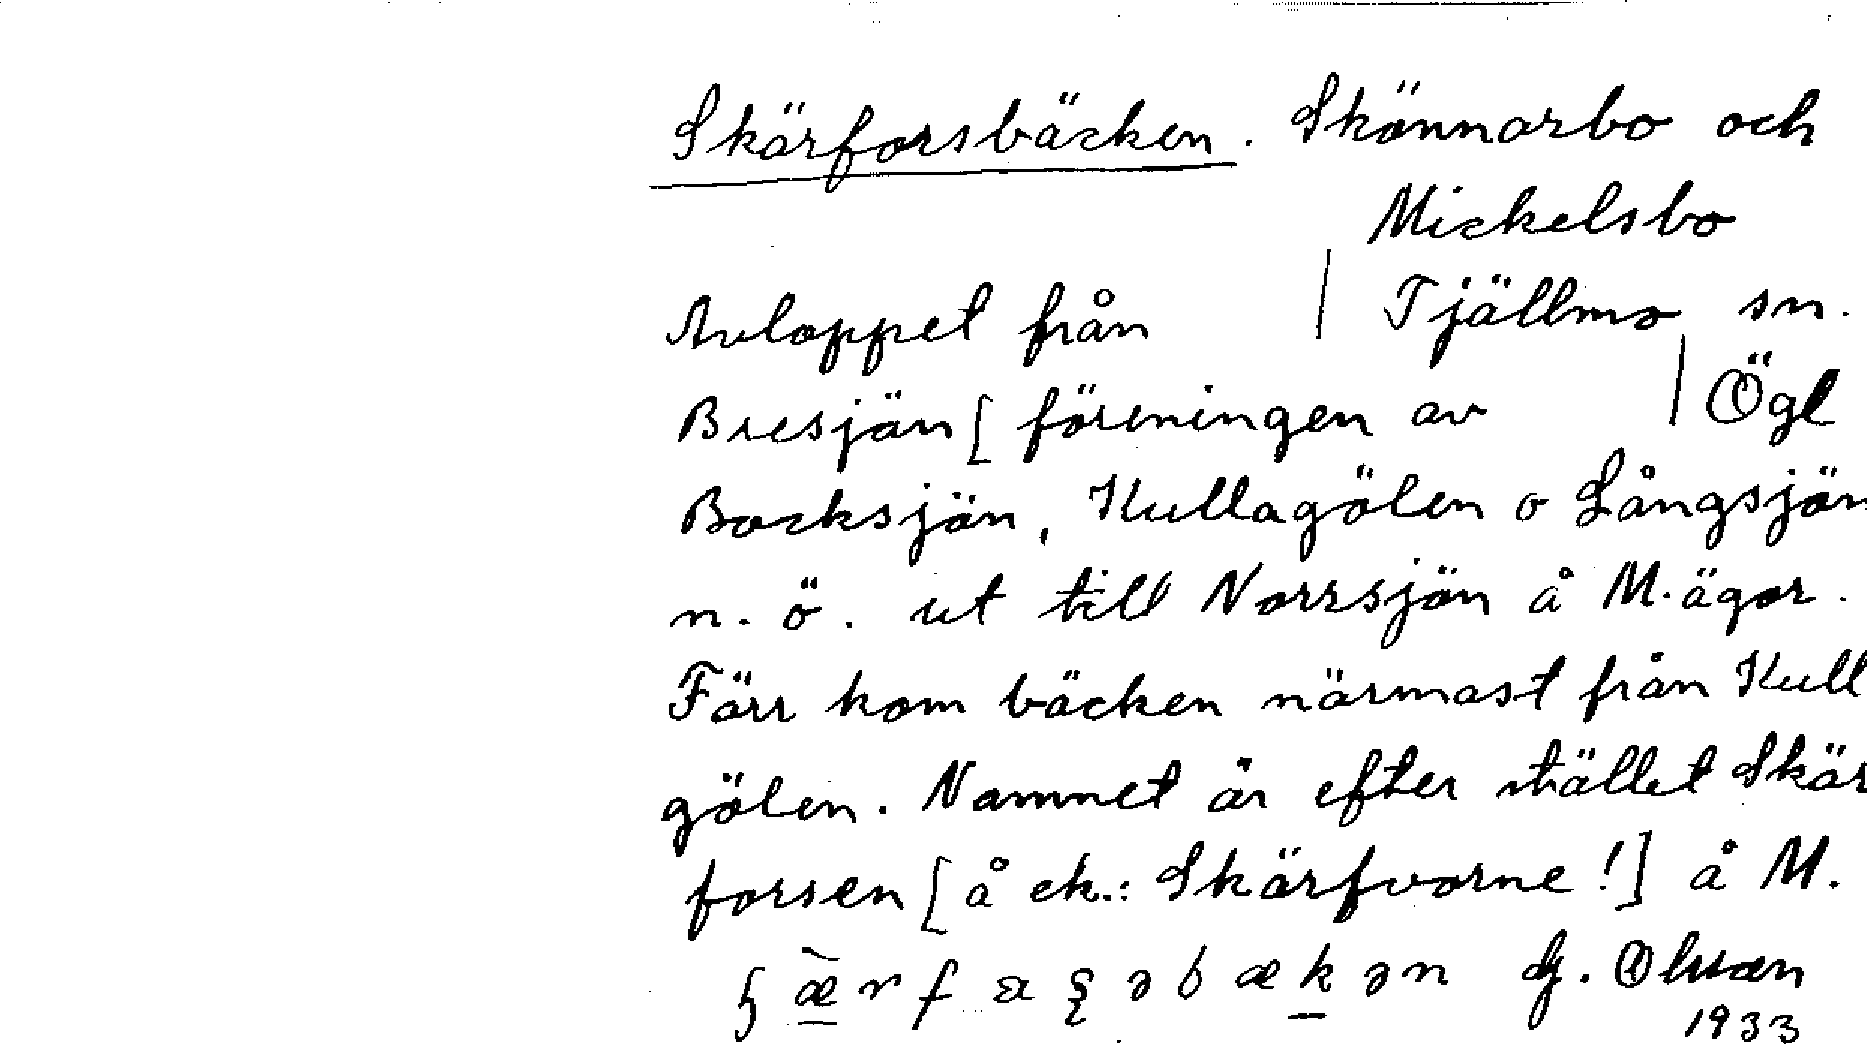 Skärforsbäcken. Skönnarbo och
Mickelsbo
Avloppet från | Tjällmo sn.
Bresjön [föreningen av | Ögl
Bocksjön, Kullagölen o Långsjön
n. ö. ut till Norrsjön å M. ägor.
Förr kom bäcken närmast från Kull
gölen. Namnet är efter stället Skär
forsen [å ek.: Skärfvorne!] å M.
G. Olsson
1933